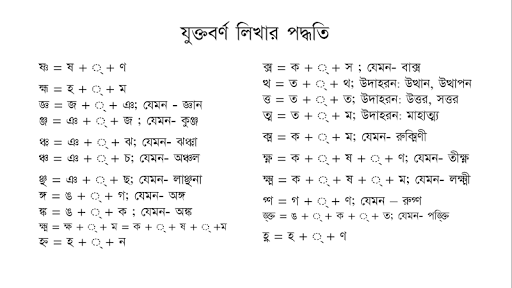 যুক্তবর্ণ লিখার পদ্ধতি
ষ্ণ = ষ + ্ + ণ
হ্ম = হ + ্ + ম
জ্ঞ = জ + ্ + ঞ; যেমন - জ্ঞান
ঞ্জ = ঞ + ্ + জ ; যেমন- কুঞ্জ
ঞ্ঝ = ঞ + ্ + ঝ; যেমন- ঝঞ্ঝা
ঞ্চ = ঞ + ্ + চ; যেমন- অঞ্চল
ঞ্ছ = ঞ + ্ + ছ; যেমন- লাঞ্ছনা
ঙ্গ = ঙ + ্ + গ; যেমন- অঙ্গ
ঙ্ক = ঙ + ্ + ক ; যেমন- অঙ্ক
ক্ষ্ম = ক্ষ + ্ + ম = ক + ্ + ষ + ্ +ম
হ্ন = হ + ্ + ন
ক্স = ক + ্ + স ; যেমন- বাক্স
ত্থ = ত + ্ + থ; উদাহরন: উত্থান, উত্থাপন
ত্ত = ত + ্ + ত; উদাহরন: উত্তর, সত্তর
ত্ম = ত + ্ + ম; উদাহরন: মাহাত্ম্য
ক্ম = ক + ্ + ম; যেমন- রুক্মিণী
ক্ষ্ণ = ক + ্ + ষ + ্ + ণ; যেমন- তীক্ষ্ণ
ক্ষ্ম = ক + ্ + ষ + ্ + ম; যেমন- লক্ষ্মী
গ্ণ = গ + ্ + ণ; যেমন – রুগ্ণ
ঙ্ক্ত = ঙ + ্ + ক + ্ + ত; যেমন- পঙ্ক্তি
হ্ণ = হ + ্ + ণ